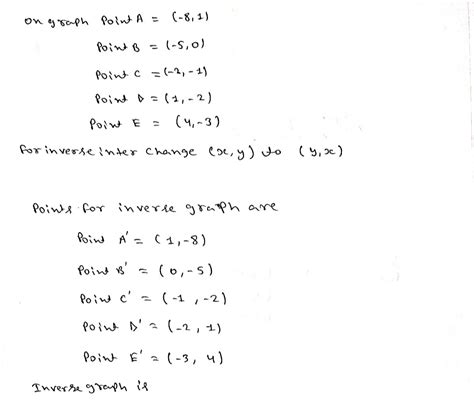 on graph Point A = (-8,1)
Point B = (-5,0)
Point C = (-2,-1)
Point D = (1,-2)
Point E = (4,-3)
for inverse inter change (x,y) to (y,x)
Points for inverse graph are
Point A' = (1,-8)
Point B' = (0,-5)
Point C' = (-1,-2)
Point D' = (-2,1)
Point E' = (-3,4)
Inverse graph is